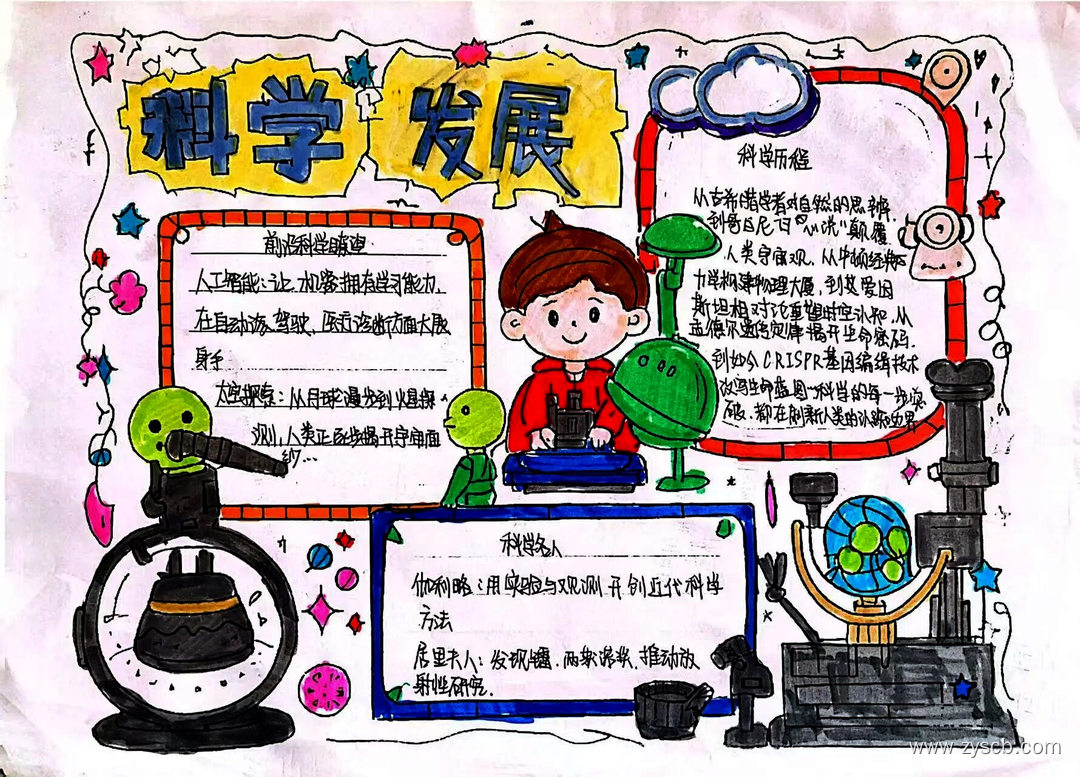 科学 发展
前沿科学瞭望
人工智能：让机器拥有学习能力，
在自动驾驶、医疗诊断方面大展
身手
太空探索：从月球漫步到火星探
测，人类正逐步揭开宇宙面
纱…
科学历程
从古希腊学者对自然的思辨，
到哥白尼"日心说"颠覆
人类宇宙观，从牛顿经典
力学构建物理大厦，到爱因
斯坦相对论重塑时空认知，从
孟德尔遗传定律揭开生命密码，
到如今CRISPR基因编辑技术
改写生命蓝图，科学的每一步突
破，都在刷新人类的认知边界
科学名人
伽利略：用实验与观测开创近代科学
方法
居里夫人：发现镭，两获诺奖，推动放
射性研究.
www.zyscb.com